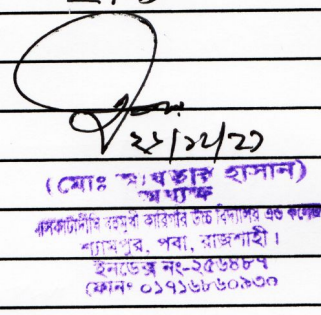 ২১/১২/২১
(মোঃ হাসান)
অধ্যক্ষ
বহুমুখী কারিগরি উচ্চ বিদ্যালয় এন্ড কলেজ
শ্যামপুর, পবা, রাজশাহী।
ইনডেক্স নং-২৫৬৪৮৭
ফোনঃ ০১৭১৬৮৬০৯৩০